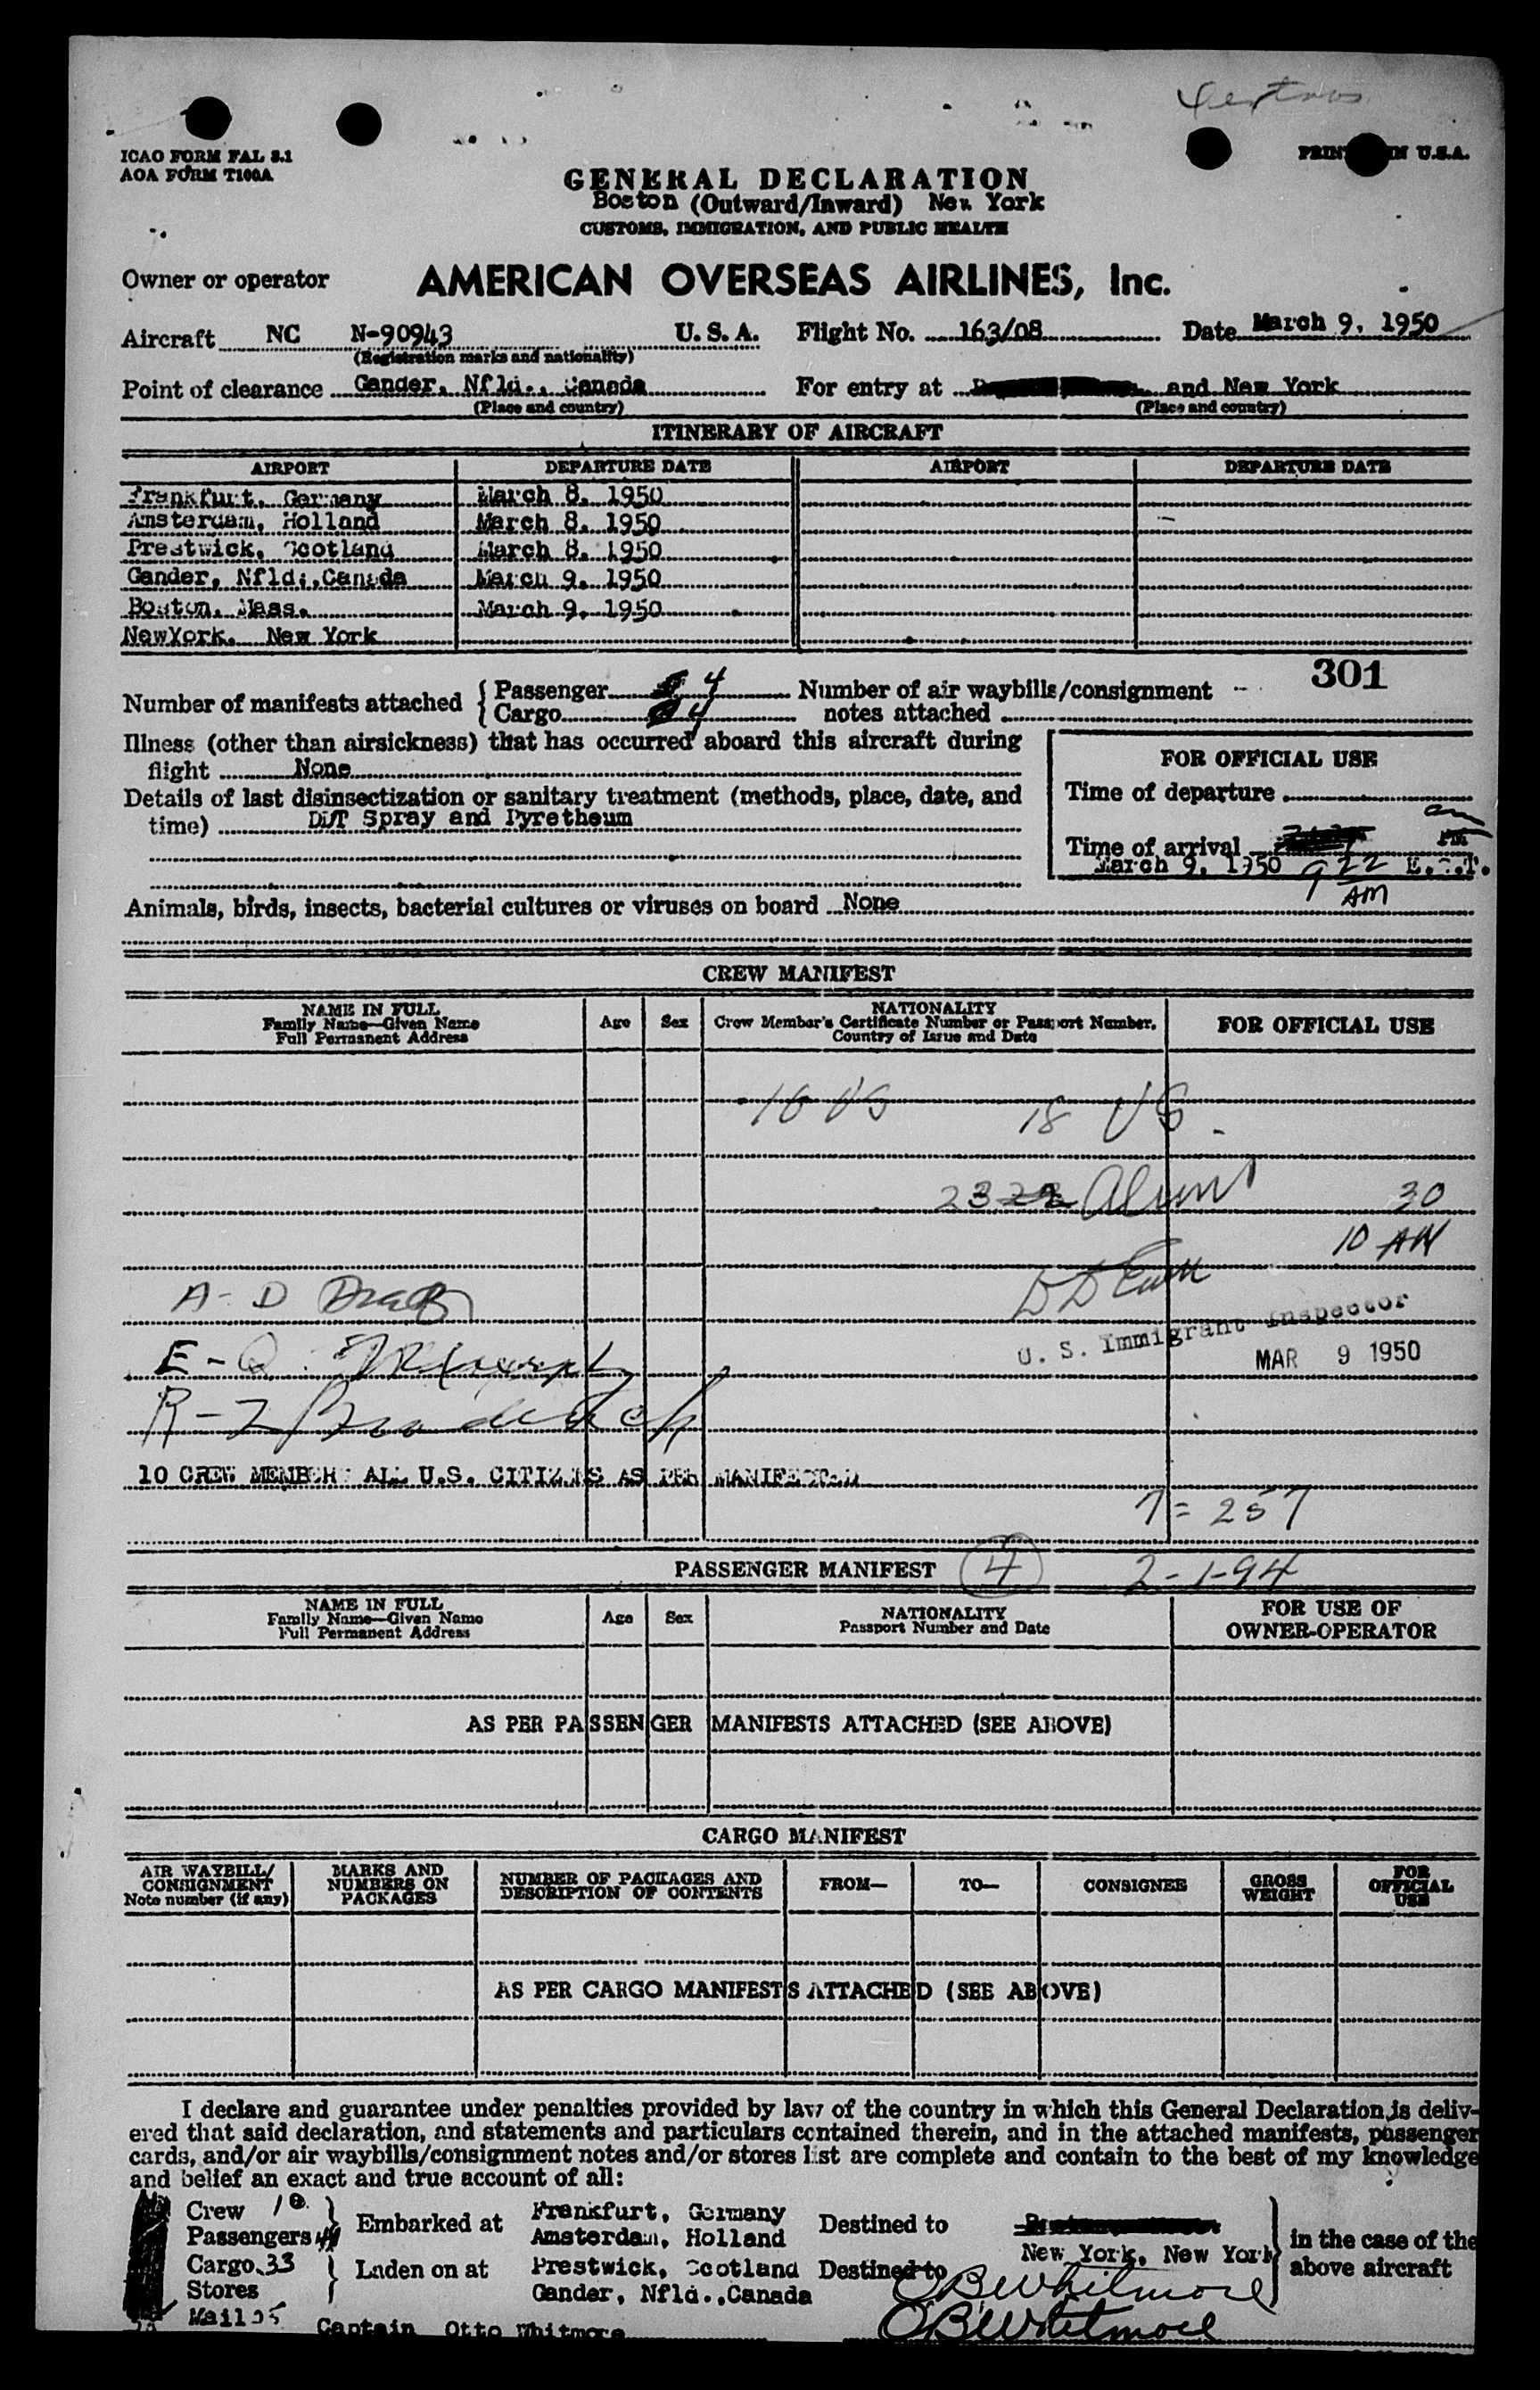 ICAO FORM FAL 3.1
AOA FORM T100A
PRINTED IN U.S.A.
GENERAL DECLARATION
Boston (Outward/Inward) New York
CUSTOMS, IMMIGRATION, AND PUBLIC HEALTH
Owner or operator AMERICAN OVERSEAS AIRLINES, Inc.
Aircraft NC N-90943 U. S. A. Flight No. 163/08 Date March 9, 1950
(Registration marks and nationality)
Point of clearance Gander, Nfld., Canada For entry at and New York
(Place and country) (Place and country)
ITINERARY OF AIRCRAFT
AIRPORT DEPARTURE DATE AIRPORT DEPARTURE DATE
Frankfurt, Germany March 8, 1950
Amsterdam, Holland March 8, 1950
Prestwick, Scotland March 8, 1950
Gander, Nfld.,Canada March 9, 1950
Boston, Mass. March 9, 1950
NewYork, New York
301
Number of manifests attached { Passenger 4 Number of air waybills/consignment
Cargo 4 notes attached
Illness (other than airsickness) that has occurred aboard this aircraft during
flight None
Details of last disinsectization or sanitary treatment (methods, place, date, and
time) DDT Spray and Pyretheum
FOR OFFICIAL USE
Time of departure
Time of arrival
March 9, 1950 9 22 E.S.T.
AM
Animals, birds, insects, bacterial cultures or viruses on board None
CREW MANIFEST
NAME IN FULL
Family Name—Given Name
Full Permanent Address
Age Sex
NATIONALITY
Crew Member's Certificate Number or Passport Number,
Country of Issue and Date
FOR OFFICIAL USE
10 US 18 US
23 30
10 AM
A-D
U. S. Immigrant Inspector
E-Q
MAR 9 1950
R-Z
10 CREW MEMBERS ALL U.S. CITIZENS AS PER MANIFESTED
7 = 257
PASSENGER MANIFEST 4 2-1-94
NAME IN FULL
Family Name—Given Name
Full Permanent Address
Age Sex
NATIONALITY
Passport Number and Date
FOR USE OF
OWNER-OPERATOR
AS PER PASSENGER MANIFESTS ATTACHED (SEE ABOVE)
CARGO MANIFEST
AIR WAYBILL/
CONSIGNMENT
Note number (if any)
MARKS AND
NUMBERS ON
PACKAGES
NUMBER OF PACKAGES AND
DESCRIPTION OF CONTENTS
FROM— TO— CONSIGNEE
GROSS
WEIGHT
FOR
OFFICIAL
USE
AS PER CARGO MANIFESTS ATTACHED (SEE ABOVE)
I declare and guarantee under penalties provided by law of the country in which this General Declaration is deliv-
ered that said declaration, and statements and particulars contained therein, and in the attached manifests, passenger
cards, and/or air waybills/consignment notes and/or stores list are complete and contain to the best of my knowledge
and belief an exact and true account of all:
Crew 10
Passengers 41
Cargo 33
Stores
Mail 25
Embarked at
Laden on at
Frankfurt, Germany
Amsterdam, Holland
Prestwick, Scotland
Gander, Nfld.,Canada
Destined to
Destined to
New York, New York
in the case of the
above aircraft
OBWhitmore
Captain Otto Whitmore OBWhitmore